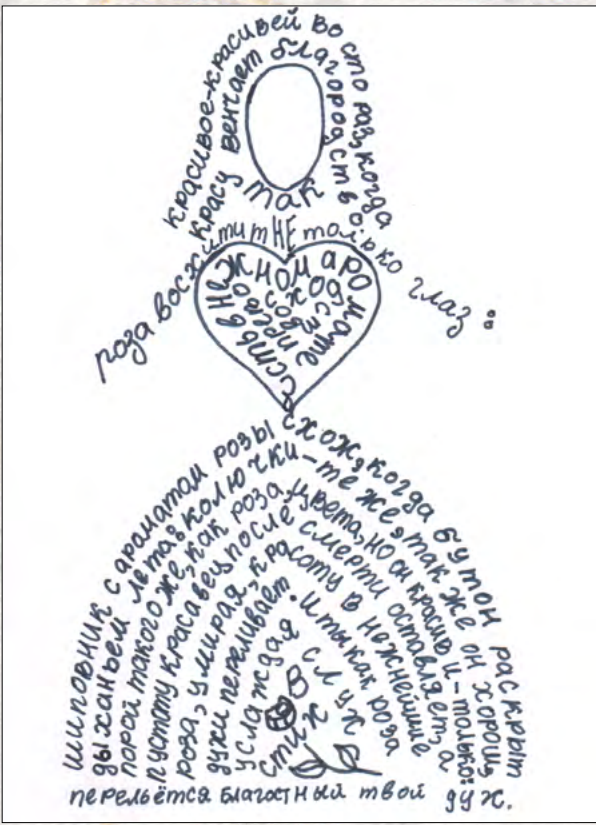 красивое-красивей во сто раз, когда
красу венчает благородство
так
роза восхитит НЕ только глаз:
есть в нежном аромате
превосходство
шиповник с ароматом розы схож, когда бутон раскрыт
дыханьем лета: колючки-те же, так же он хорош,
порой такого же, как роза, цвета, но он красив и-только:
пустоту красавец после смерти оставляет, а
роза, умирая, красоту в нежнейшие
духи переливает. И ты как роза
услаждая слух
в
стих
перельётся благостный твой дух.